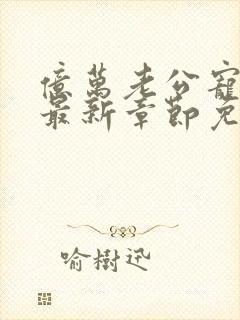 億萬老公寵
最新章節免
喻樹迅